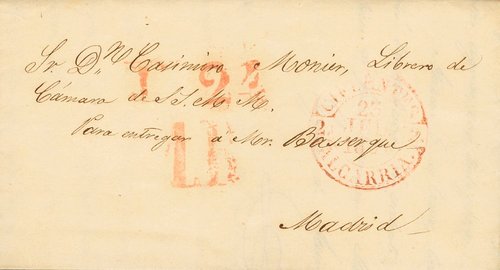 Sr. Dn. Casimiro Monier, Librero de
Cámara de S.S. M.M.
Para entregar a Mr. Basserque
Madrid
23
ALCARRIA.